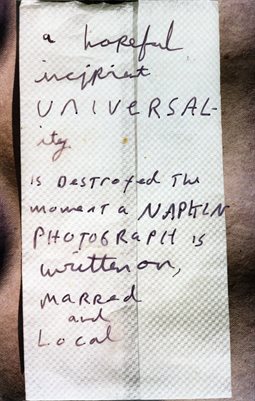 a hopeful
incipient
UNIVERSAL-
ity
is DESTROYED THE
moment a NAPKIN
PHOTOGRAPH is
written on,
MARRED
and
Local